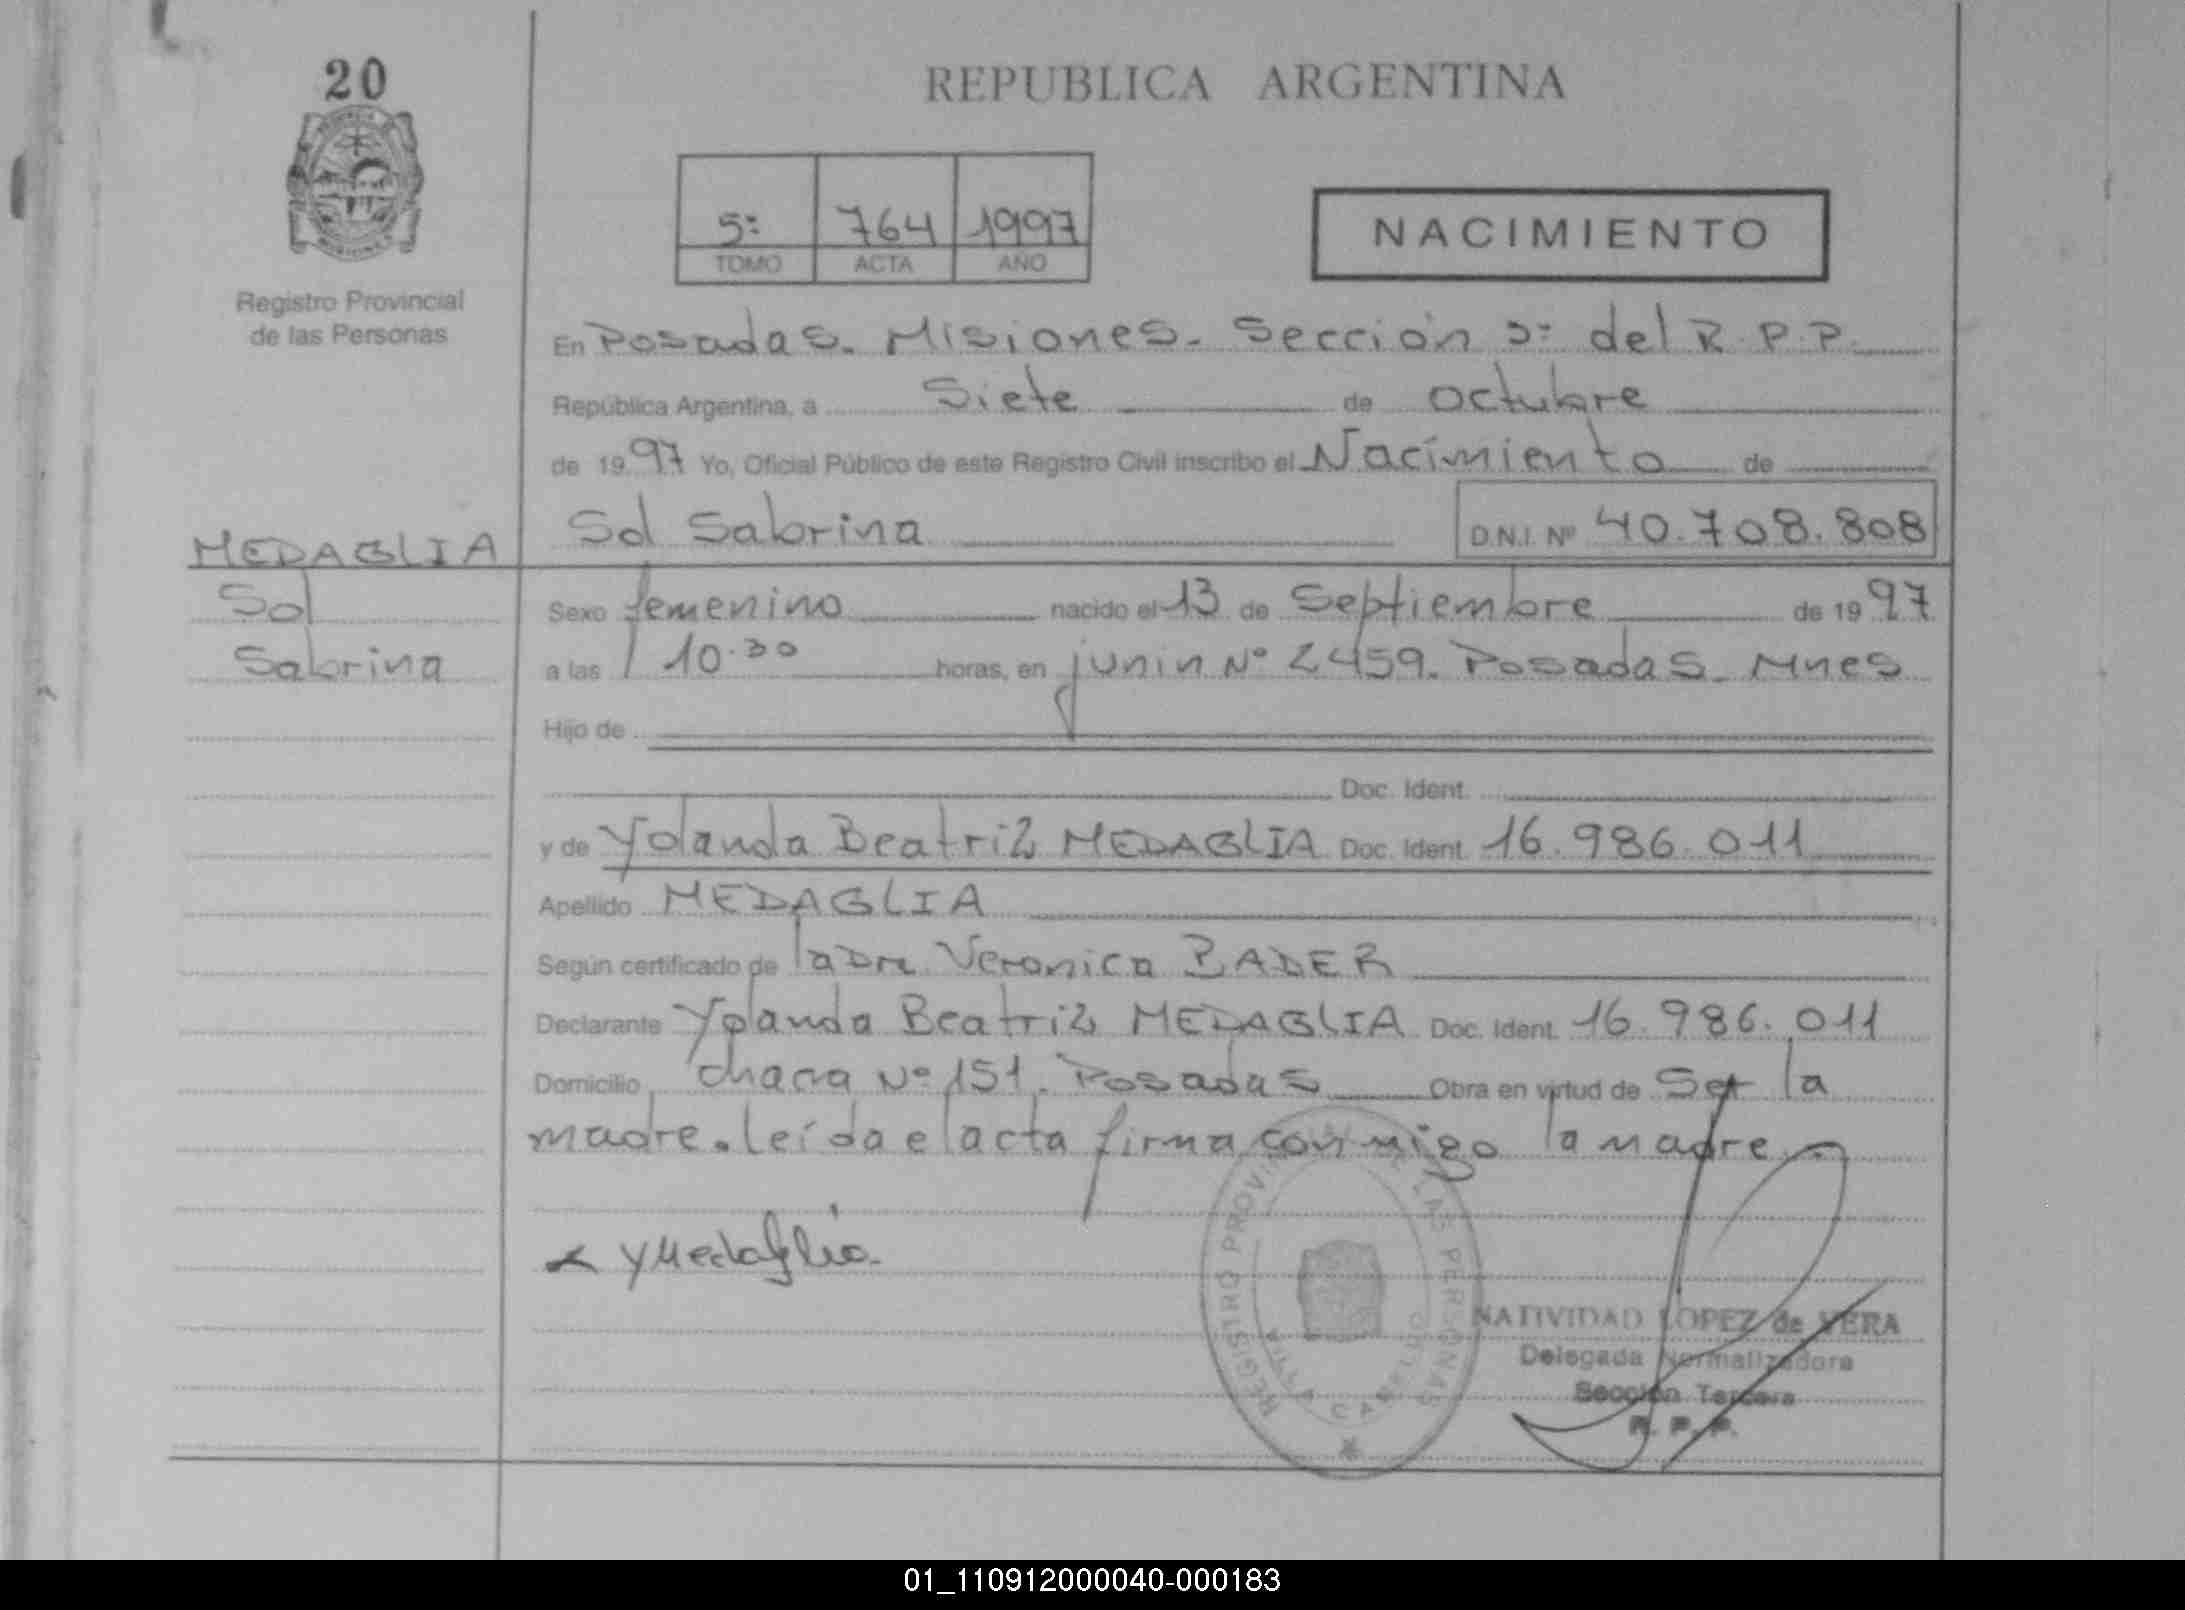 20
Registro Provincial
de las Personas
REPUBLICA ARGENTINA
5º 764 1997
TOMO ACTA AÑO
NACIMIENTO
En Posadas. Misiones. Sección 3º del R.P.P.
República Argentina, a Siete de octubre
de 1997 Yo, Oficial Público de este Registro Civil inscribo el Nacimiento de
Sol Sabrina D.N.I. Nº 40.708.808
MEDAGLIA
Sol
Sabrina
Sexo femenino nacido el 13 de Septiembre de 1997
a las 10.30 horas, en junin Nº 2459. Posadas. Mnes
Hijo de
Doc. Ident.
y de Yolanda Beatriz MEDAGLIA Doc. Ident. 16.986.011
Apellido MEDAGLIA
Según certificado de la Dra Veronica BADER
Declarante Yolanda Beatriz MEDAGLIA Doc. Ident. 16.986.011
Domicilio chacra Nº 151. Posadas Obra en virtud de Ser la
madre. leída el acta firma conmigo la madre.
YMedaglia.
REGISTRO PROVINCIAL DE LAS PERSONAS
VILLA CABELLO
NATIVIDAD LOPEZ de VERA
Delegada Normalizadora
Sección Tercera
R. P. P.
01_110912000040-000183